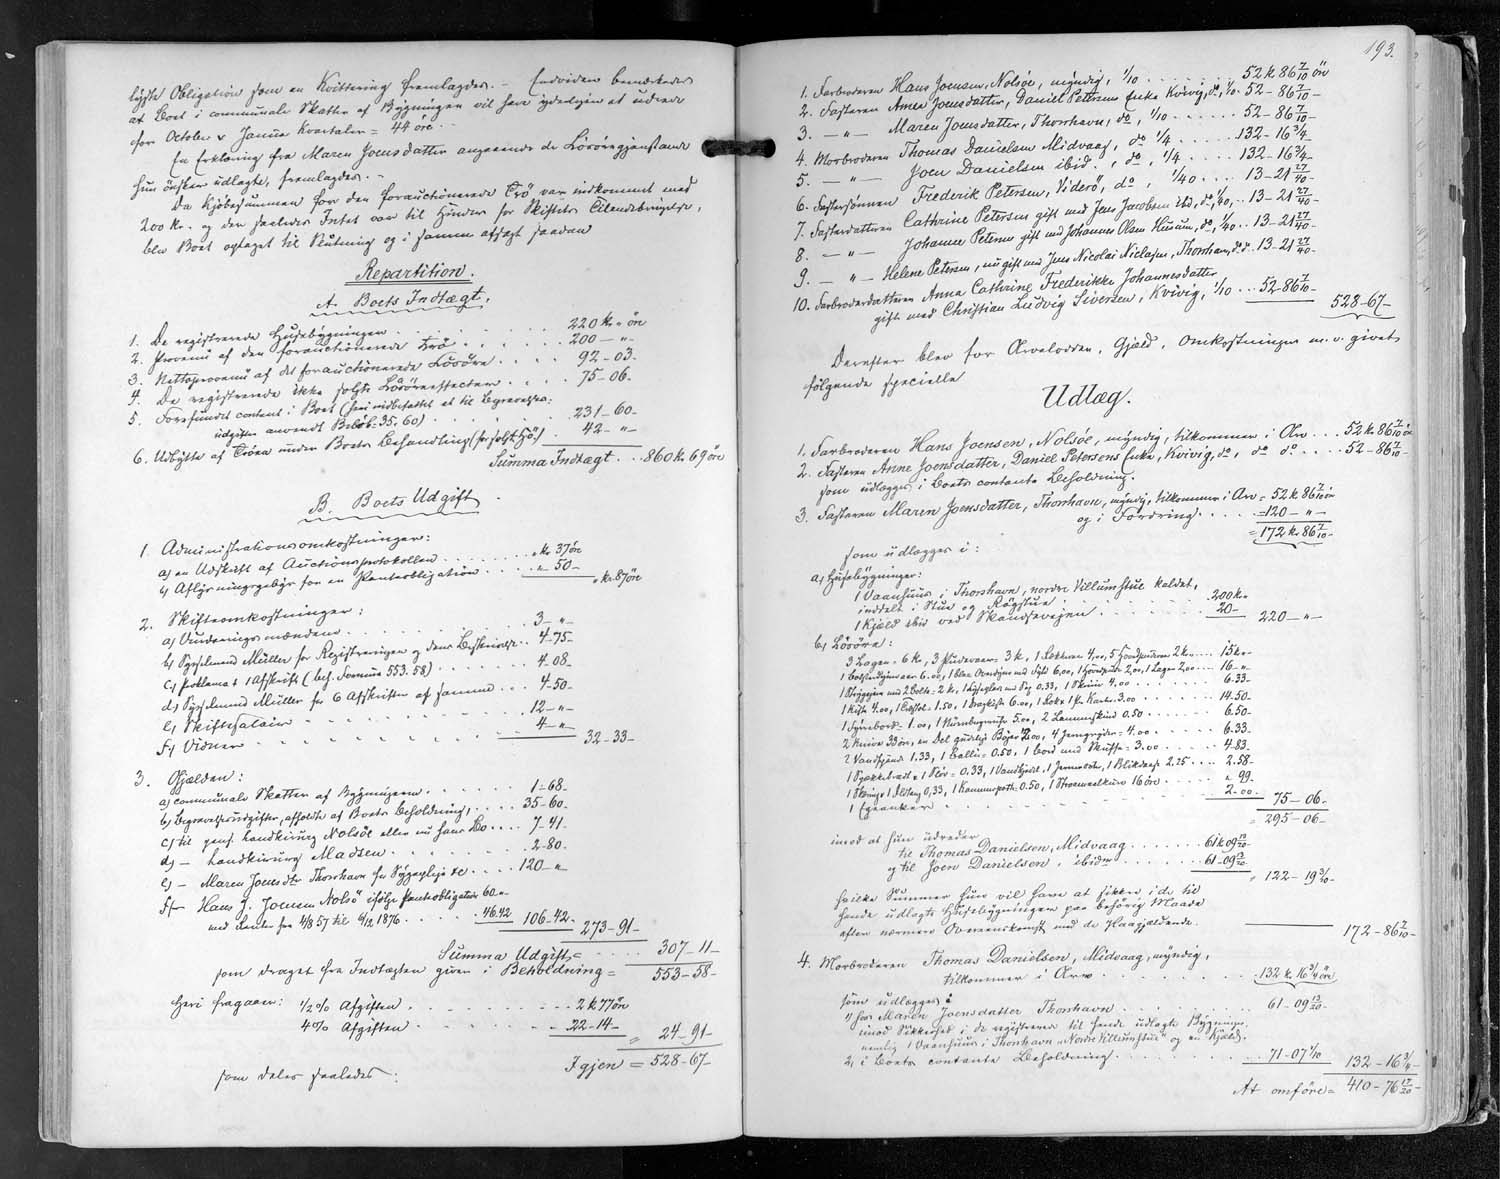 lyste Obligation som en Kvittering fremlagdes. – Endvidere bemærkedes
at Boet i communale Skatter af Bygningen vil have yderligere at udrede
for October & Januar Kvartaler = 44 öre. –
En Erklæring fra Maren Joensdatter angaaende de Lösöregjenstande
hun önsker udlagte, fremlagdes. –
Da Kjöbesummen for den forauctionerede Trö var indkommet med
200 kr. og der saaledes Intet var til Hinder for Skiftets Tilendebringelse,
blev Boet optaget til Slutning og i samme afsagt saadan
Repartition.
A. Boets Indtægt.
1. De registrerede Husebygninger . . . 220 kr. „ öre
2. Provenü af den forauctionerede Trö . . . 200 – „ –
3. Nettoprovenü af det forauctionerede Lösöre . . . 92 – 03.
4. De registrerede ikke solgte Lösöreeffecter . . . 75 – 06.
5. Forefundet contant i Boet (heri indbefattet et til Begravelses-
udgifter anvendt Belöb: 35,60) . . . 231 – 60 –
6. Udbytte af Tröen under Boets Behandling (for solgt Hö) . 42 – „ –
Summa Indtægt . . 860 kr. 69 öre
B. Boets Udgift.
1. Administrationsomkostninger:
a) en Udskrift af Auctionsprotokollen . . . „ kr. 37 öre
b) Aflysningsgebyr for en Panteobligation . . . „ – 50 –
„ kr. 87 öre
2. Skifteomkostninger:
a) Vurderingsmændene . . . 3 – „ –
b) Sysselmand Müller for Registreringen og dens Beskrivelse . . 4 – 75 –
c) Proklamat 1 Afskrift (bes. Formue 553.58) . . . 4 – 08 –
d) Sysselmand Müller for 6 Afskrifter af samme . . . 4 – 50 –
e) Skiftesalair . . . 12 – „ –
f) Vidner . . . 4 – „ –
32 – 33 –
3. Gjælden:
a) communale Skatter af Bygningerne . . . 1 – 68 –
b) Begravelsesudgifter, afholdte af Boets Beholdning, . . . 35 – 60 –
c) til pens. Landkirurg Nolsöe eller nu hans Bo . . . 7 – 41 –
d) – Landkirurg Madsen . . . 2 – 80 –
e) – Maren Joensdtr Thorshavn for Sygepleje &c . . . 120 – „ –
f) – Hans J. Joensen Nolsö ifölge Panteobligation 60 – „ –
med Renter fra 4/8 57 til 6/12 1876 . . . 46.42 106 – 42 – 273 – 91 –
Summa Udgift = . . . 307 – 11 –
som draget fra Indtægten giver i Beholdning = 553 – 58 –
Heri fragaaer: 1/2 % Afgiften . . . 2 k 77 öre
4 % Afgiften . . . 22 – 14 –
„ 24 – 91 –
Igjen = 528 – 67 –
som deles saaledes:
193.
1. Farbroderen Hans Joensen, Nolsöe, myndig, 1/10 . . . 52 k 86 7/10 öre
2. Fasteren Anna Joensdatter, Daniel Petersens Enke Kvivig, do, 1/10 . 52 – 86 7/10 –
3. – „ – Maren Joensdatter, Thorshavn, do, 1/10 . . . 52 – 86 7/10 –
4. Morbroderen Thomas Danielsen Midvaag, do 1/4 . . . 132 – 16 3/4 –
5. – „ – Joen Danielsen ibid., do, 1/4 . . . 132 – 16 3/4 –
6. Fastersönnen Frederik Petersen, Viderö, do, 1/40 . . . 13 – 21 27/40 –
7. Fasterdatteren Cathrine Petersen gift med Jens Jacobsen ibd, do, 1/40, . . 13 – 21 27/40 –
8. – „ – Johanne Petersen gift med Johannes Olsen Husum, do, 1/40 . . 13 – 21 27/40 –
9. – „ – Helene Petersen, nu gift med Jens Nicolai Niclasen, Thorshavn, do. do. 13 – 21 27/40 –
10. Farbroderdatteren Anna Cathrine Frederikke Johannesdatter
gift med Christian Ludvig Sivertsen, Kvivig, 1/10 . . . 52 – 86 7/10 –
528 – 67 –
Derefter blev for Arvelodder, Gjæld, Omkostninger m. v. givet
fölgende specielle
Udlæg.
1. Farbroderen Hans Joensen, Nolsöe, myndig, tilkommer i Arv . . . 52 k 86 7/10 öre
2. Fasteren Anne Joensdatter, Daniel Petersens Enke, Kvivig, do, do do . . . 52 – 86 7/10 –
som udlægges i Boets contante Beholdning.
3. Fasteren Maren Joensdatter, Thorshavn, myndig, tilkommer i Arv = 52 k 86 7/10 öre
og i Fordring . . . = 120 – „ –
= 172 kr 86 7/10 –
som udlægges i:
a) Husebygninger:
1 Vaanhuus i Thorshavn, nordre Villumstue kaldet,
inddelt i Stue og Rögstue . . . 200 kr –
1 Kjæld ibid ved Skandsevejen . . . 20 –
220 – „ –
b) Lösöre:
3 Lagen = 6 k, 3 Pudevaar = 3 k, 1 4,00, 5 2 k . . . 15 k „
6.00, 1 blaa Overdyne med Fyld 6,00, 1 2,00, 1 Lagen 2,00 . . . 16 – „
1 med 2 Bolte = 2 k, 0.33, 1 Skrin 4.00 . . . 6.33
1 Kiste 4.00, 1 1.50, 1 Dragkiste 6.00, 1 Rok & 1 Pr Karter 3.00 . . . 14.50
1.00, 1 5.00, 2 Lammeskind 0.50 . . . 6.50
2 Knive 33 öre, en Del gudelige Böger 2.00, 4 Jerngryder = 4.00 . . . 6.33
2 1.33, 1 0.50, 1 Bord med Skuffe = 3.00 . . . 4.83
1 & 1 = 0.33, 1 , 1 , 1 2.25 . . . 2.58
1 & 1 Ildtang 0,33, 1 0.50, 1 16 öre . . . „ 99.
1 . . . 2 – 00 –
75 – 06 –
= 295 – 06 –
imod at hun udreder
til Thomas Danielsen, Midvaag . . . 61 k 09 13/20 –
og til Joen Danielsen, ibidem . . . 61 – 09 13/20 –
„ 122 – 19 3/10 –
hvilke Summer hun vil have at sikre i de til
hende udlagte Husebygninger paa behörig Maade
efter nærmere Overenskomst med de Paagjældende.
172 – 86 7/10 –
4. Morbroderen Thomas Danielsen, Midvaag, myndig,
tilkommer i Arv . . . 132 k 16 3/4 öre
som udlægges i
1, hos Maren Joensdatter Thorshavn . . . 61 – 09 13/20 –
imod Sikkerhed i de registrerede til hende udlagte Bygninger,
nemlig 1 Vaanhuus i Thorshavn „Nordre Villumstue" og en Kjæld.
2, i Boets contante Beholdning . . . 71 – 07 1/10 132 – 16 3/4 –
At omföre = 410 – 76 17/20 –